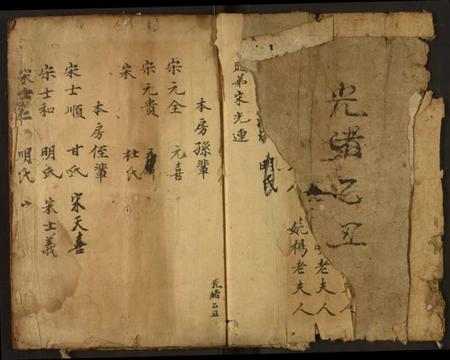 光緒乙丑
老夫人
妣楊老夫人
明氏
胞弟宋光連
本房孫輩
宋元全 元喜
宋元貴
宋 杜氏
本房侄輩
宋士順 甘氏 宋天喜
宋士和 明氏 宋士義
宋士 明氏
光緒乙丑